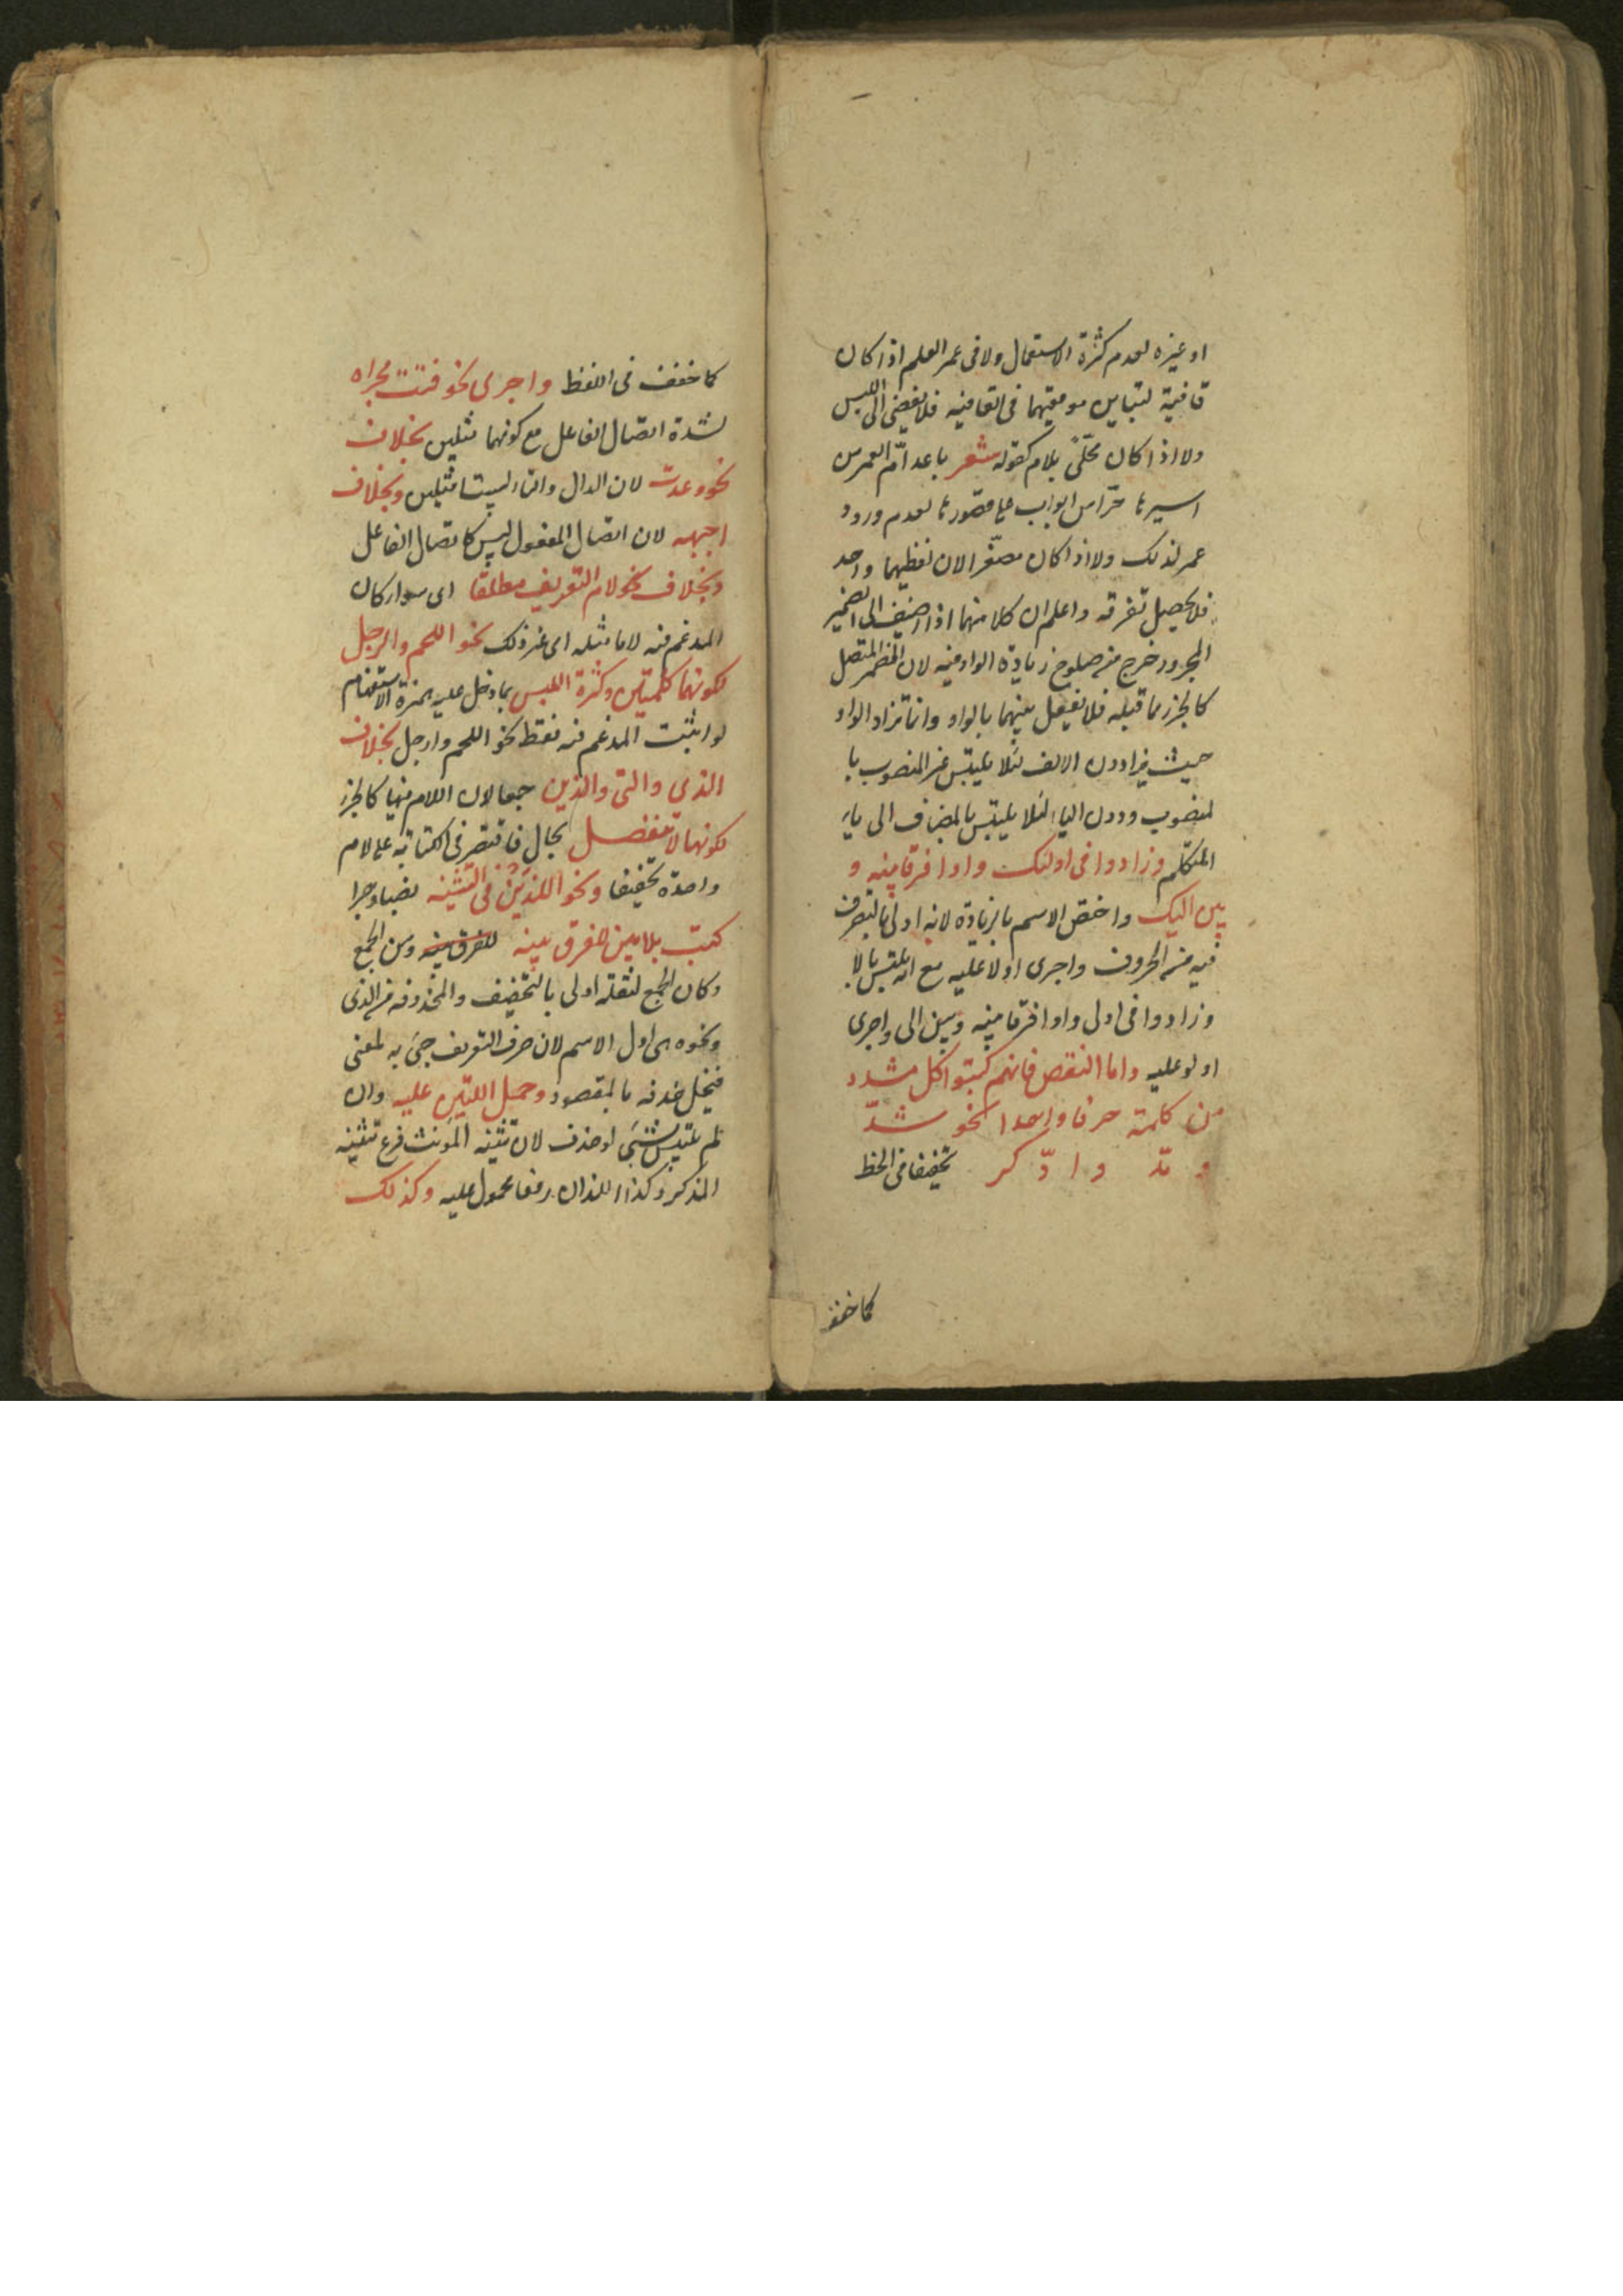 او غيره لعدم كثرة الاستعمال ولا فى عمر العلم اذا كان
قافية لتباين موقعيهما فى القافيه فلا يفضى الى اللبس
ولا اذا كان محلّى بلام كقوله شعر باعد امّ العمرمن
اسيرها حرّاس ابواب على قصورها لعدم ورود
عمر لذلك ولا اذا كان مصغّرا لان لفظيهما واحد
فلا يحصل تفرقه واعلم ان كلا منهما اذا اضيف الى الضمير
المجرور خرج من صلوح زيادة الواو فيه لان المضمر المتصل
كالجزء مما قبله فلا يفصل بينهما بالواو وانما تزاد الواو
حيث يزاد دون الالف لئلا يلتبس غير المنصوب با
لمنصوب ودون الياء لئلا يلتبس بالمضاف الى ياء
المتكلم وزادوا فى اولئك واوا فرقا بينه و
بين اليك واختص الاسم بالزيادة لانه اولى بالتصرف
فيه من الحروف واجرى اولا عليه مع انه يلتبس بالا
وزادوا فى اولى واوا فرقا بينه وبين الى واجرى
اولو عليه واما النقص فانهم كتبوا كل مشدد
من كلمة حرفا واحدا نحو شدّ
و مدّ وادّكر تخفيفا فى الخط
كما خفف
كما خفف فى اللفظ واجرى نحو فتتّ مجراه
لشدة اتصال الفاعل مع كونهما مثلين بخلاف
نحو وعدت لان الدال والتاء ليستا مثلين وبخلاف
اجبهه لان اتصال المفعول ليس كاتصال الفاعل
وبخلاف نحو لام التعريف مطلقا اى سواء كان
المدغم فيه لاما مثله ام غير ذلك نحو اللحم والرجل
لكونهما كلمتين وكثرة اللبس بما دخل عليه همزة الاستفهام
لو اثبت المدغم فيه فقط نحو اللحم وارجل بخلاف
الذى والتى والذين جمعا لان اللام فيها كالجزء
لكونها لا تنفصل بحال فاقتصر فى الكتابة على لام
واحدة تخفيفا ونحو اللذين فى التثنيه نصبا وجرا
كتب بلامين للفرق بينه للفرق بينه وبين الجمع
وكان الجمع لثقله اولى بالتخفيف والمحذوفه من الذى
ونحوه هى اول الاسم لان حرف التعريف جئ به لمعنى
فيخل حذفه بالمقصود وحمل اللتين عليه وان
لم يلتبس بشئ لو حذف لان تثنيه المؤنث فرع تثنيه
المذكر وكذا اللذان رفعا محمول عليه وكذلك